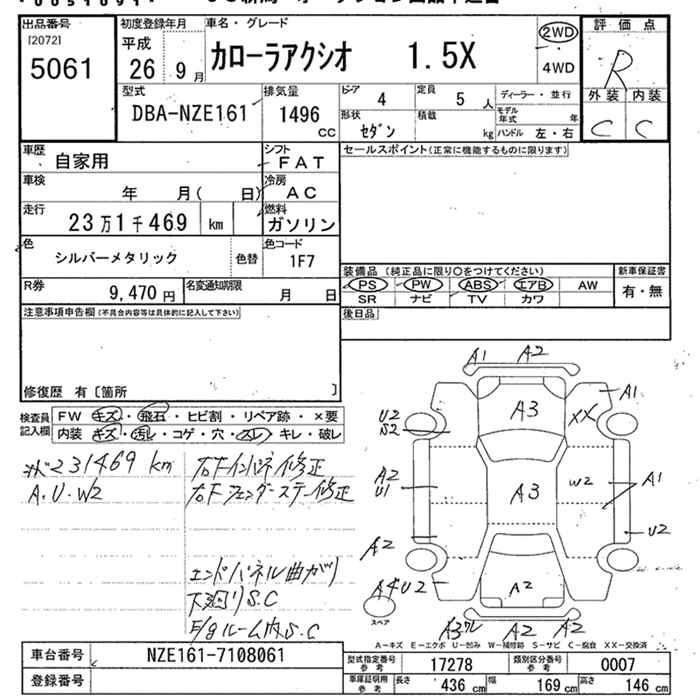 出品番号
[2072]
5061
初度登録年月
平成
26 9月
車名・グレード
カローラアクシオ 1.5X
2WD
4WD
評価点
R
外装 内装
C C
型式
DBA-NZE161
排気量
1496
cc
ドア 4
定員 5 人
ディーラー・並行
モデル年式 年
形状 セダン
積載 kg
ハンドル 左・右
車歴 自家用
シフト FAT
セールスポイント(正常に機能するものに限ります)
車検 年 月( 日)
冷房 AC
走行 23万1千469 km
燃料 ガソリン
色 シルバーメタリック
色替
色コード 1F7
装備品 (純正品に限り○をつけてください)
新車保証書
PS PW ABS エアB AW
有・無
SR ナビ TV カワ
R券 9,470円
名変通知期限 月 日
後日品
注意事項申告欄(不具合内容等は具体的に記入して下さい)
修復歴 有〔箇所 〕
検査員記入欄
FW キズ・飛石・ヒビ割・リペア跡・×要
内装 キズ・汚レ・コゲ・穴・スレ・キレ・破レ
231469 km
A.U.W2
右Fインパネ修正
右Fフェンダーステー修正
エンドパネル曲がり
下廻りS.C
E/gルーム内S.C
A1 A2
A3
A1
XX
U2
S2
A2
U1
A3
W2
A1
U2
A2
A4 U2
A2
スペア
A2 A2
A-キズ E-エクボ U-凹み W-補修跡 S-サビ C-腐食 XX-交換済
車台番号 NZE161-7108061
登録番号
型式指定番号 参考 17278
類別区分番号 参考 0007
車庫証明用 参考 長さ 436 cm 幅 169 cm 高さ 146 cm